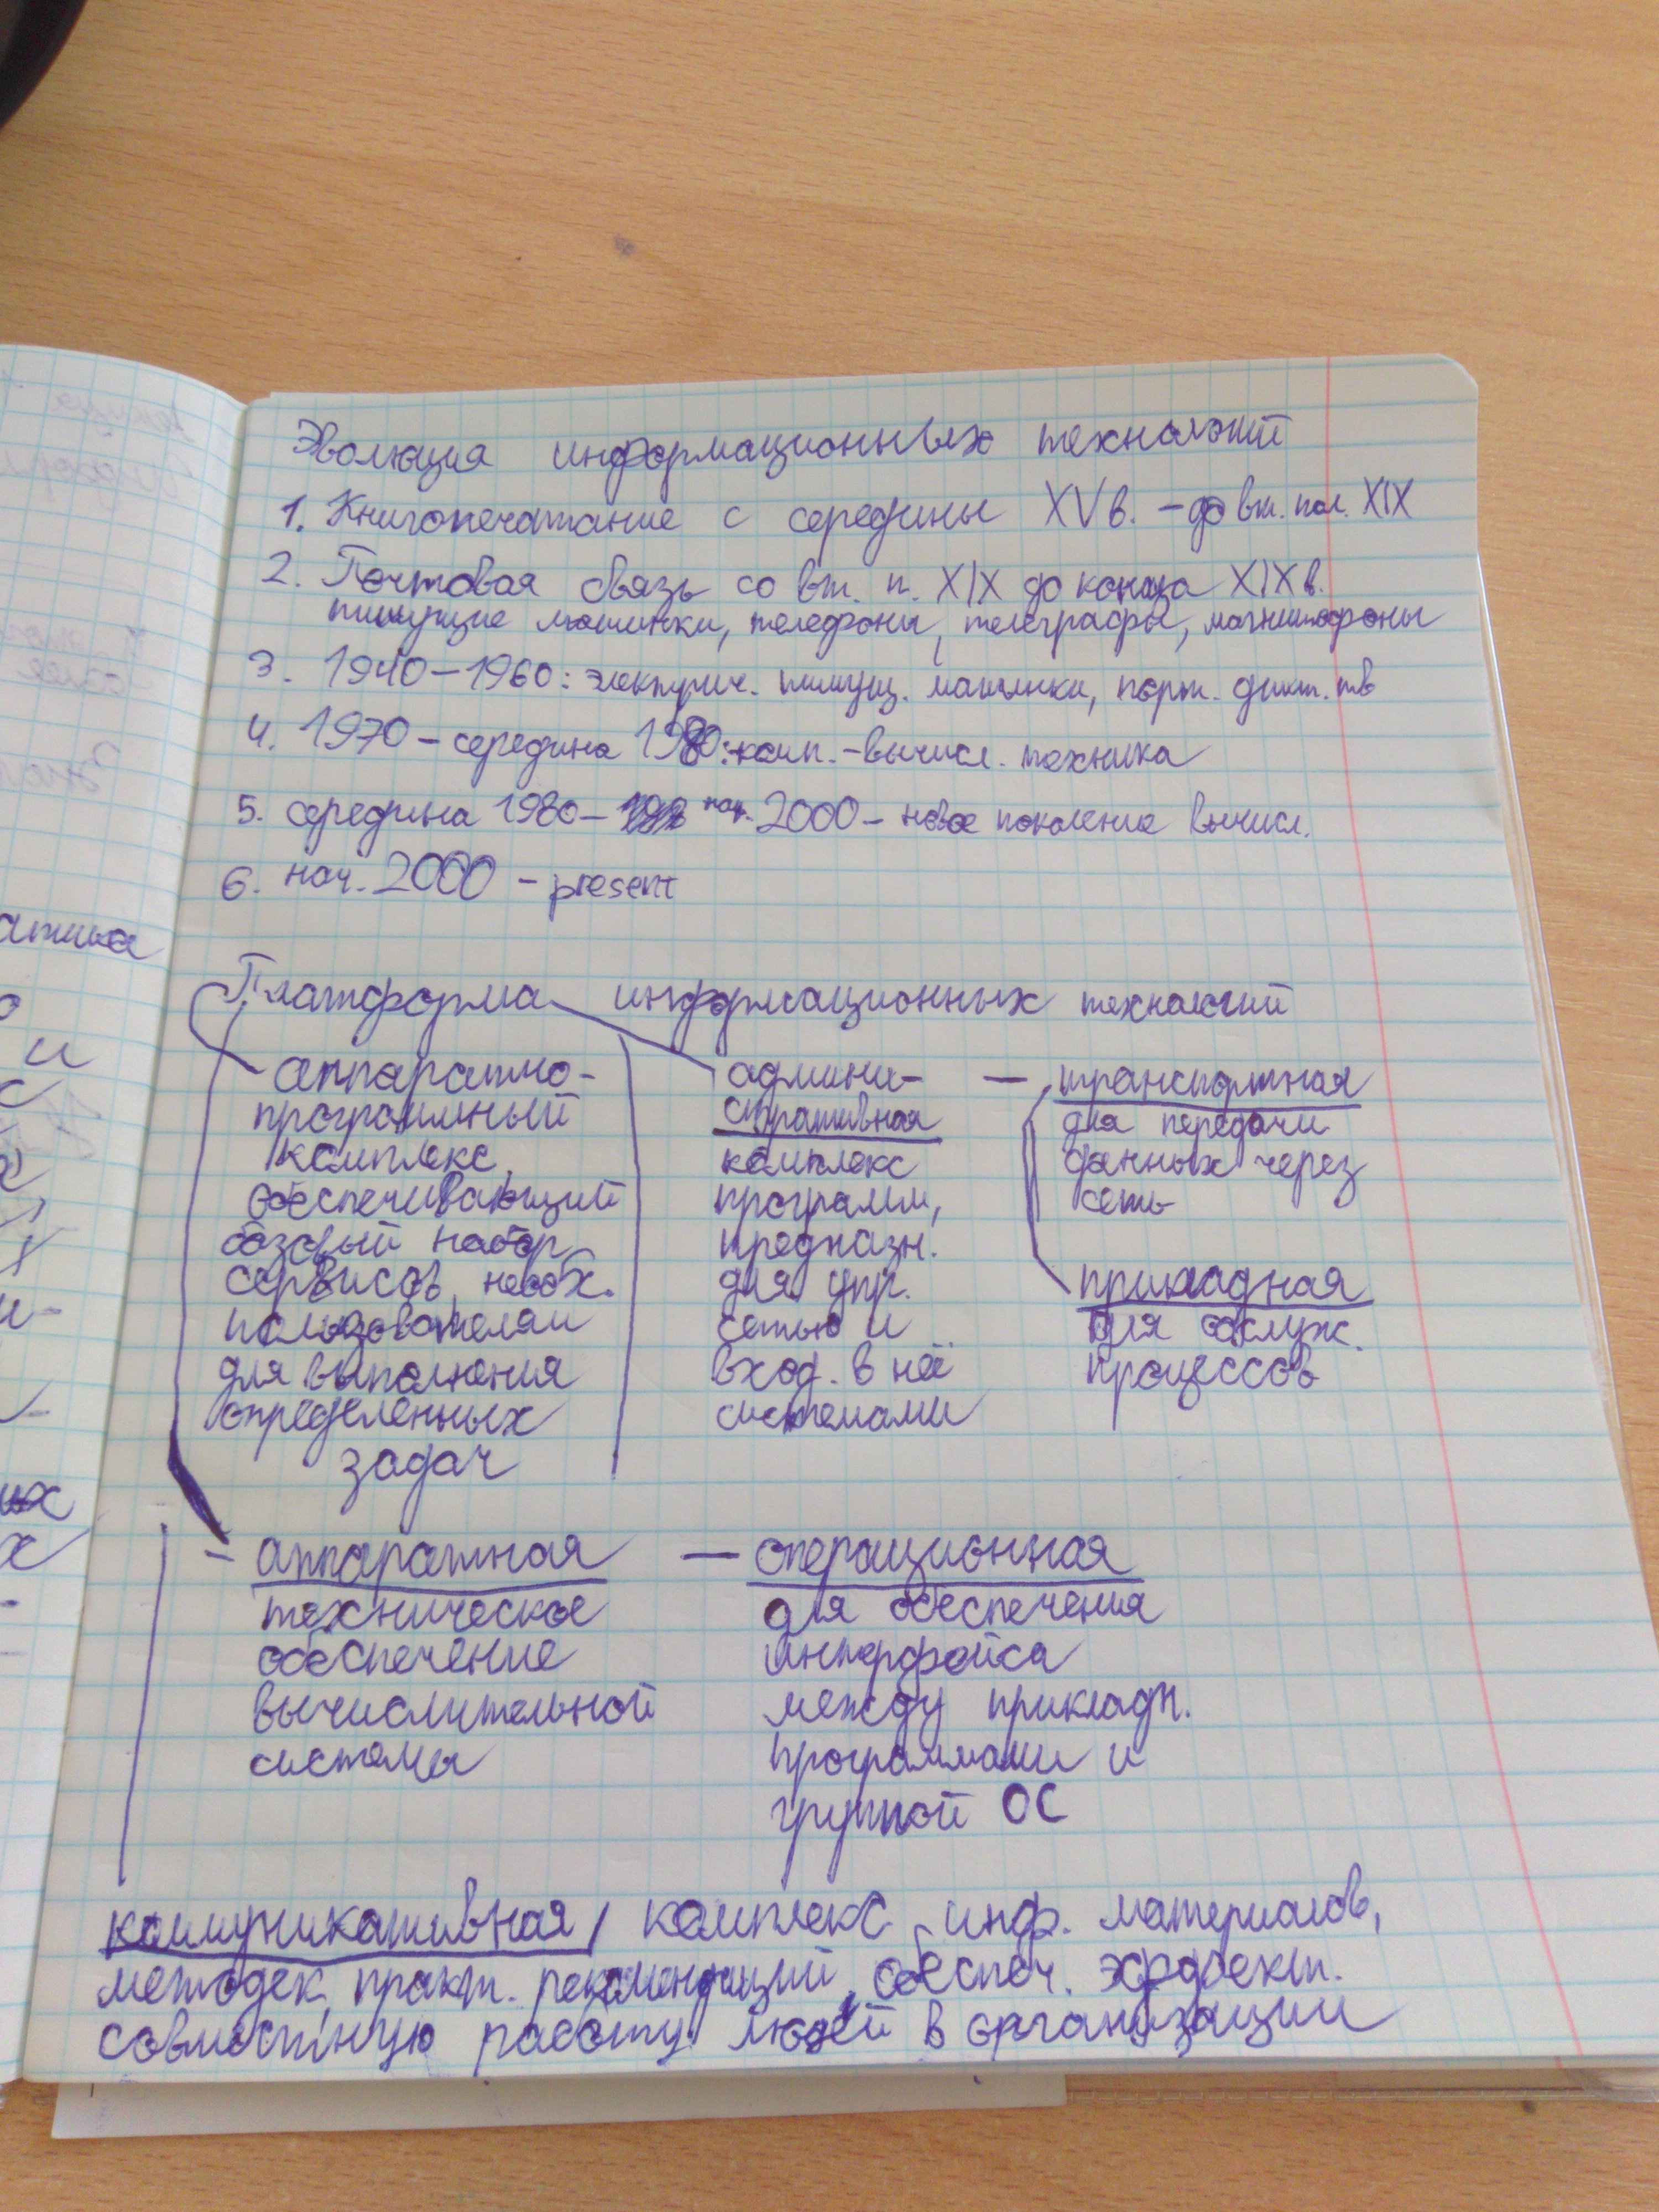 Эволюция информационных технологий
1. Книгопечатание с середины XV в. – до вт. пол. XIX
2. Почтовая связь со вт. п. XIX до конца XIX в.
пишущие машинки, телефоны, телеграфы, магнитофоны
3. 1940–1960: электрич. пишущ. машинки, порт. дикт. тв
4. 1970 – середина 1980: комп. – вычисл. техника
5. середина 1980 – нач. 2000 – новое поколение вычисл.
6. нач. 2000 – present
Платформа информационных технологий
аппаратно-
программный
комплекс,
обеспечивающий
базовый набор
сервисов, необх.
пользователям
для выполнения
определенных
задач
админи-
стративная
комплекс
программ,
предназн.
для упр.
сетью и
вход. в неё
системами
– транспортная
для передачи
данных через
сеть
прикладная
для обслуж.
процессов
– аппаратная
техническое
обеспечение
вычислительной
системы
– операционная
для обеспечения
интерфейса
между прикладн.
программами и
группой ОС
коммуникативная / комплекс инф. материалов,
методек, практ. рекомендаций, обеспеч. эффект.
совместную работу людей в организации
атика
и
их
х